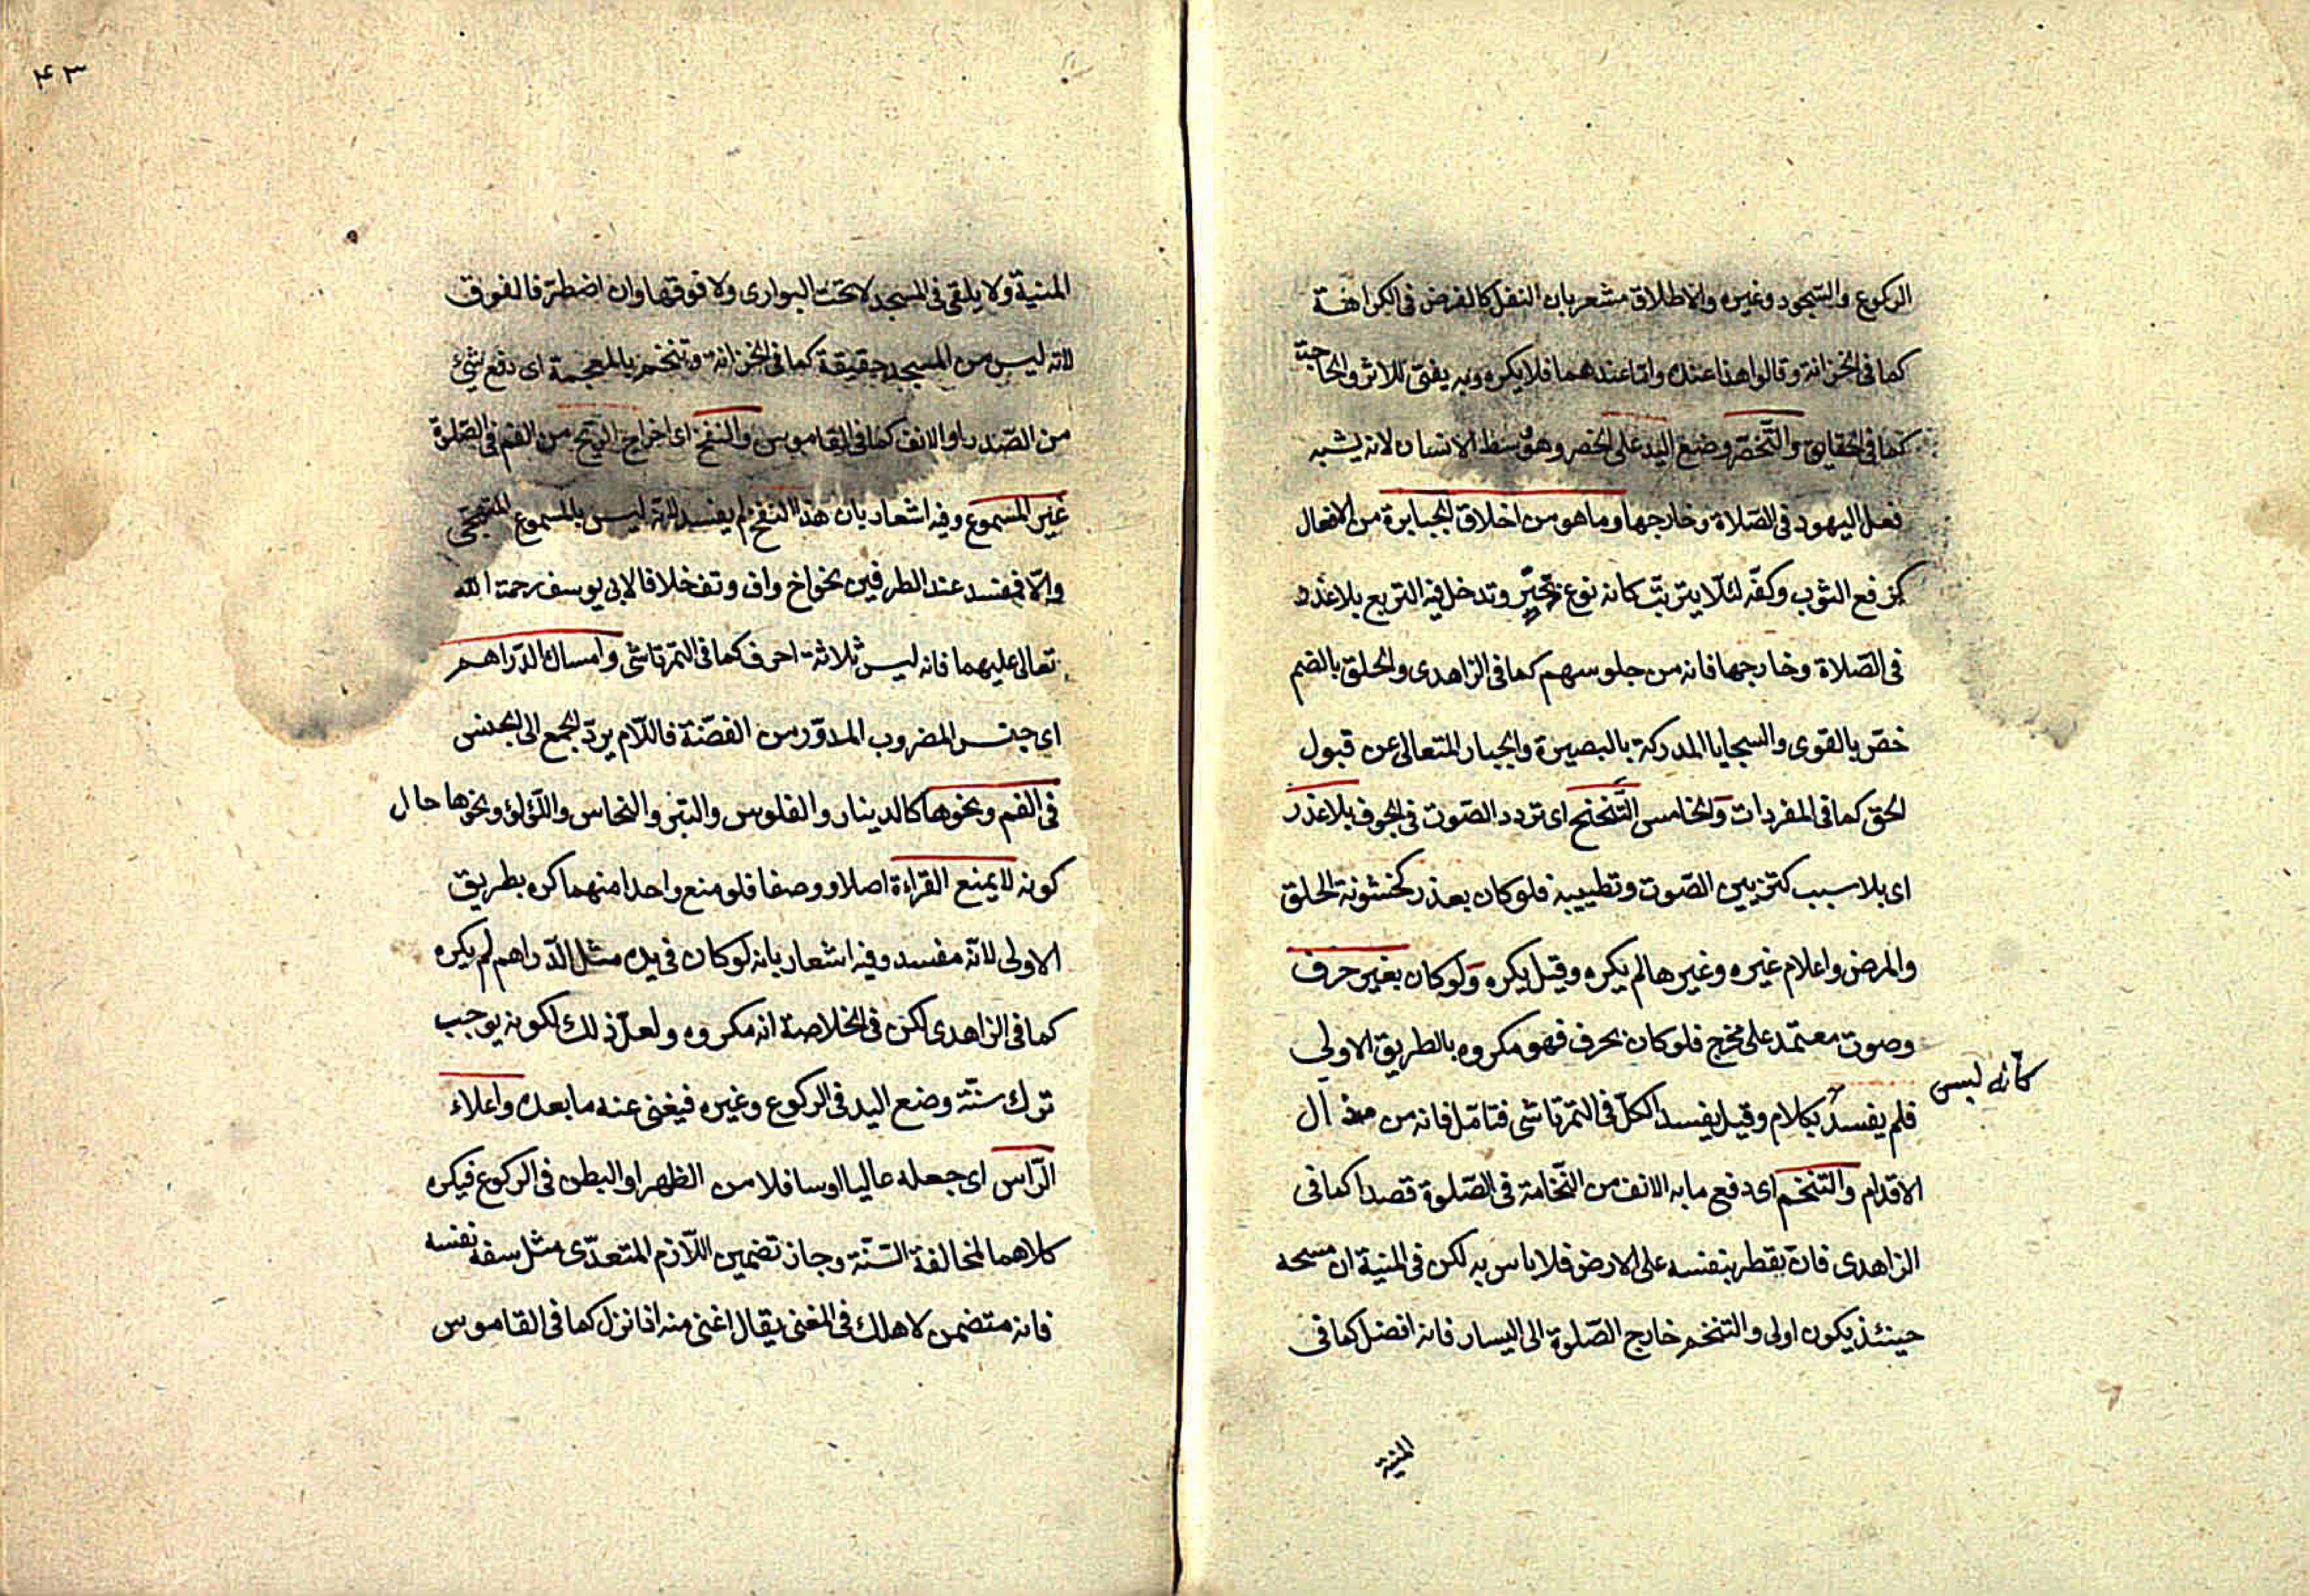 الركوع والسجود وغيره والاطلاق مشعر بان النفل كالفرض فى الكراهة
كما فى الخزانة وقالوا هذا عنده واما عندهما فلا يكره وبه يفتى للاثر والحاجة
كما فى الحقايق والتخصر وضع اليد على الخصر وهو وسط الانسان لانه يشبه
فعل اليهود فى الصلاة وخارجها وما هو من اخلاق الجبابرة من الافعال
كرفع الثوب وكفه لئلا يتربت كانه نوع تجبر وتدخل فيه التربع بلا عذر
فى الصلاة وخارجها فانه من جلوسهم كما فى الزاهدى والخلق بالضم
خص بالقوى والسجايا المدركة بالبصيرة والجبار المتعالى عن قبول
الحق كما فى المفردات والخامس التنحنح اى تردد الصوت فى الجوف بلا عذر
اى بلا سبب كتزيين الصوت وتطييبه فلو كان بعذر كخشونة الحلق
والمرض واعلام غيره وغيرها لم يكره وقيل يكره ولو كان بغير حرف
وصوت معتمد على مخرج فلو كان بحرف فهو مكروه بالطريق الاولى
كانه ليس
فلم يفسد بكلام وقيل يفسد الكل فى التمرتاشى فتامل فانه من مذال
الاقدام والتنخم اى دفع ما به الانف من النخامة فى الصلوة قصدا كما فى
الزاهدى فان يقطر بنفسه على الارض فلا باس به لكن فى المنية ان مسحه
حينئذ يكون اولى والتنخم خارج الصلوة الى اليسار فانه افضل كما فى
المنية
٤٣
المنية ولا يلقى فى المسجد لا تحت البوارى ولا فوقها وان اضطر فالفوق
لانه ليس من المسجد حقيقة كما فى الخزانة وتنخم بالمعجمة اى دفع شئ
من الصدر او الانف كما فى القاموس والنفخ اى اخراج الريح من الفم فى الصلوة
غير المسموع وفيه اشعار بان هذا النفخ لم يفسد لانه ليس بالمسموع المتهجى
والا فيفسد عند الطرفين نحو اخ واف وتف خلافا لابى يوسف رحمة الله
تعالى عليهما فانه ليس ثلاثة احرف كما فى التمرتاشى وامساك الدراهم
اى جنس المضروب المدور من الفضة فاللام يرد الجمع الى الجنس
فى الفم ونحوها كالدينار والفلوس والتبر والنحاس واللؤلؤ ونحوها حال
كونه لا يمنع القراءة اصلا ووصفا فلو منع واحدا منهما كره بطريق
الاولى لانه مفسد وفيه اشعار بانه لو كان فى يده مثل الدراهم لم يكره
كما فى الزاهدى لكن فى الخلاصة انه مكروه ولعل ذلك لكونه يوجب
ترك سنة وضع اليد فى الركوع وغيره فيغنى عنه ما بعده واعلاء
الراس اى جعله عاليا او سافلا من الظهر او البطن فى الركوع فيكره
كلاهما لمخالفة السنة وجاز تضمين اللازم المتعدى مثل سفه نفسه
فانه متضمن لاهلك فى المغنى يقال اغنى منه اذا نزل كما فى القاموس